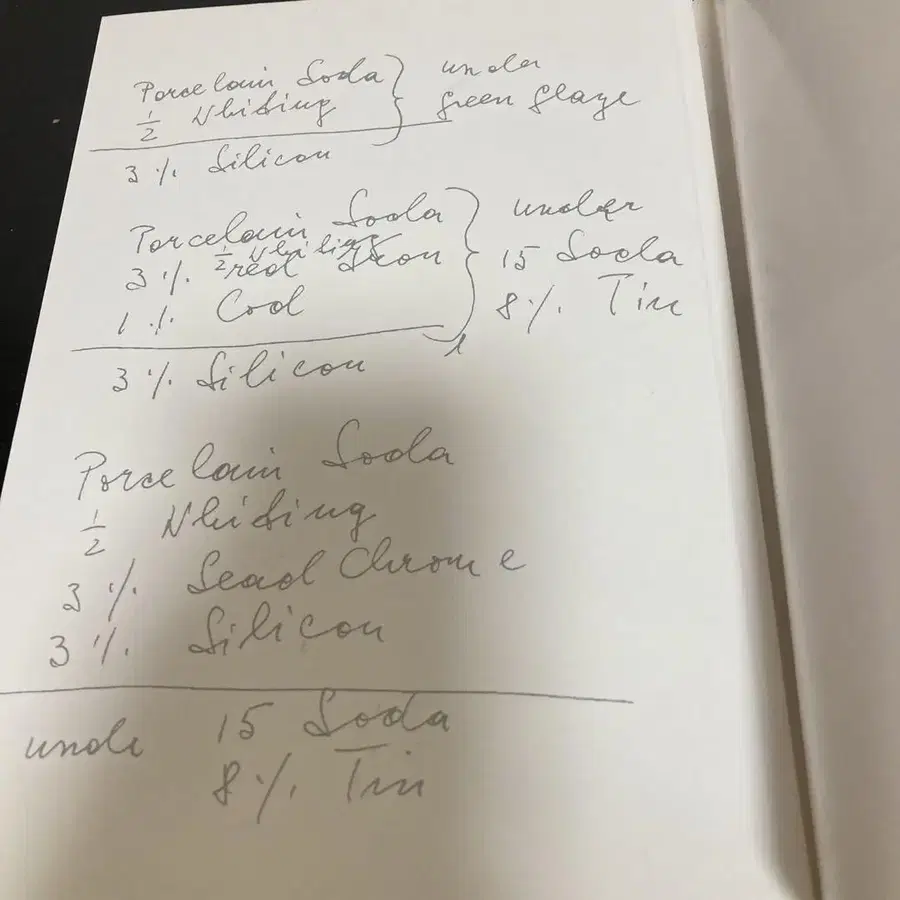 Porcelain Soda } under
1/2 Whiting } green glaze
3 % Silicon
Porcelain Soda } under
1/2 Whiting
3 % red Iron } 15 Soda
1 % Cod } 8 % Tin
3 % Silicon
Porcelain Soda
1/2 Whiting
3 % Lead Chrome
3 % Silicon
unde 15 Soda
8 % Tin